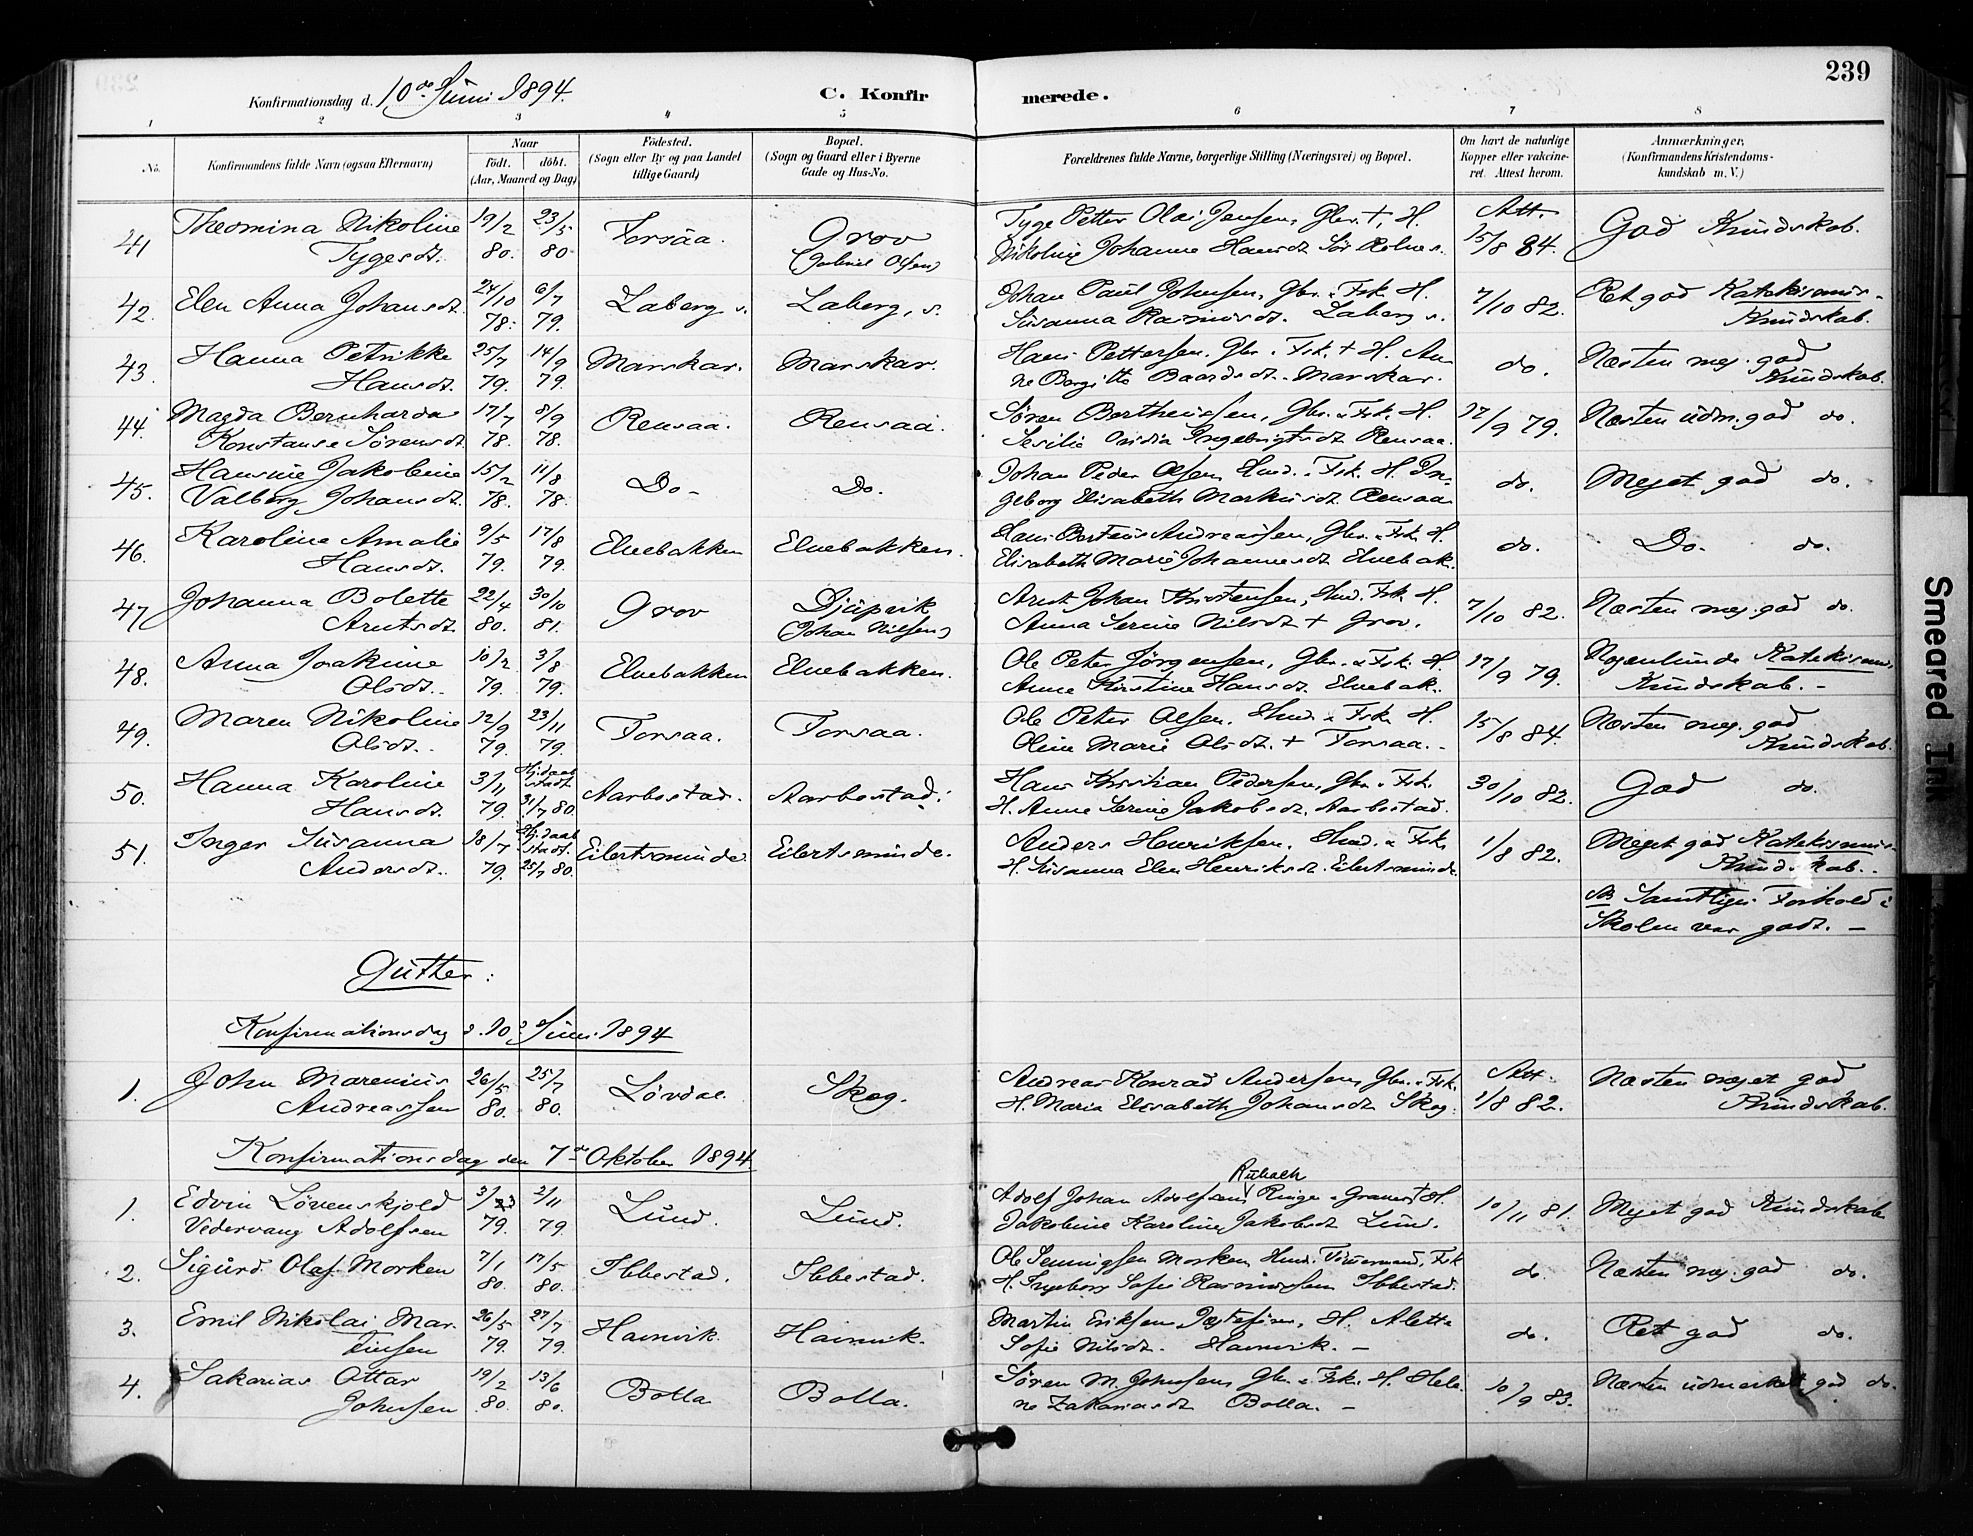 239
Konfirmationsdag d. 10de Juni 1894.
C. Konfirmerede.
1 2 3 4 5 6 7 8
No.
Konfirmandens fulde Navn (ogsaa Efternavn)
Naar
født. døbt.
(Aar, Maaned og Dag)
Fødested.
(Sogn eller By og paa Landet
tillige Gaard)
Bopæl.
(Sogn og Gaard eller i Byerne
Gade og Hus-No.
Forældrenes fulde Navne, borgerlige Stilling (Næringsvei) og Bopæl.
Om havt de naturlige
Kopper eller vakcine-
ret. Attest herom.
Anmærkninger.
(Konfirmandens Kristendoms-
kundskab m. V.)
41 Theomina Nikoline 19/2 23/5 Forsaa. Grov Tyge Petter Olai Jensen, Gbr. +, H. Att. God Kundskab.
Tygesdt. 80. 80 (Gabriel Olsen) Nikoline Johanne Hansdt Sør Rolnes. 15/8 84.
42. Elen Anna Johansdt. 24/10 6/7 Laberg s. Laberg, s. Johan Paul Johnsen, Gbr. & Fsk. H. 7/10 82. Ret god Katekismus-
78. 79. Susanna Rasmusdt. Laberg s. Kundskab.
43. Hanna Petrikke 25/7 14/9 Marskar. Marskar. Hans Pettersen, Gbr. & Fsk. + H. An- do. Næsten meg. god
Hansdt. 79. 79. ne Bergitte Baardsdt. Marskar. Kundskab.
44. Magda Bernharda 17/7 8/9 Rensaa. Rensaa. Søren Bertheussen, Gbr. & Fsk. H. 17/9 79. Næsten udm. god do.
Konstanse Sørensdt 78. 78. Sesilie Ovidia Ingebrigtsdt Rensaa.
45. Hansine Jakobine 15/2 11/8 Do - Do. Johan Peder Olsen Hmd. & Fsk. H. In- do. Meget god do.
Valborg Johansdt. 78. 78. geborg Elisabeth Markusdt Rensaa
46. Karoline Amalie 9/5 17/8 Elvebakken Elvebakken. Hans Berteus Andreassen, Gbr. & Fsk. H. do. Do. do.
Hansdt. 79. 79. Elisabeth Marie Johannesdt Elvebak.
47 Johanna Bolette 22/4 30/10 Grov Djupvik Arnt Johan Kristensen, Hmd. Fsk. H. 7/10 82. Næsten meg. god do.
Arntsdt. 80. 81. (Johan Nilsen) Anna Serine Nilsdt + Grov.
48. Anna Joakime 10/2 3/8 Elvebakken Elvebakken. Ole Peter Jörgensen, Gbr. & Fsk. H. 17/9 79. Nogenlunde Katekismus
Olsdt. 79. 79. Anne Kirstine Hansdt. Elvebak. Kundskab. -
49. Maren Nikoline 12/9 23/11 Forsaa. Forsaa. Ole Peter Olsen. Hmd. & Fsk. H. 15/8 84. Næsten meg. god
Olsdt. 79. 79. Oline Marie Olsdt. + Forsaa. - Kundskab.
50. Hanna Karoline 3/11 Hj.daab stadf. Aarbostad. Aarbostad. Hans Kristian Pedersen, Gbr. & Fsk. 30/10 82. God do.
Hansdt. 79. 31/7 80. H. Anne Serine Jakobsdt. Aarbostad.
51. Inger Susanna 10/7 Hj.daab stadf. Eilertsmunde. Eilertsmunde. Anders Henriksen. Hmd. & Fsk. 1/8 82. Meget god Katekismus-
Andersdt. 79. 25/7 80. H. Susanna Elen Henriksdt. Eilertsmunde. Kundskab. -
NB Samtliges Forhold i
Skolen var godt. -
Gutter:
Konfirmationsdag d. 10de Juni 1894
1. John Marenius 26/5 25/7 Løvdal Skog. Andreas Konrad Andersen, Gbr. & Fsk. Att. Næsten meget god
Andreassen 80. 80. H. Maria Elisabeth Johansdt Skog. 1/8 82. Kundskab.
Konfirmationsdag den 7de Oktober 1894
Rubach
1. Edvin Løvenskjold 3/ 2/11 Lund. Lund. Adolf Johan Adolfsen Ringe Graver + H. 10/11 81. Meget god Kundskab
Vedervang Adolfsen 79. 79. Jakobine Karoline Jakobsdt Lund.
2. Sigurd Olaf Morken 7/1 17/5 Ibbestad. Ibbestad. Ole Morken Hmd. Fsk do. Næsten meg. god do.
80. 80. H. Ingeborg Sofie Rasmussen Ibbestad.
3. Emil Nikolai Mar- 26/5 27/7 Hamvik. Hamvik. Martin Eriksen H. Alette do. Ret god do.
tinsen 79. 79. Sofie Nilsdt. Hamvik. -
4. Sakarias Ottar 19/2 13/6 Bolla Bolla. Søren M. Johnsen, Gbr. & Fsk. H. Hele- 10/9 83. Næsten udmerket god do.
Johnsen 80. 80. ne Zakariasdt Bolla. -
Smeared Ink